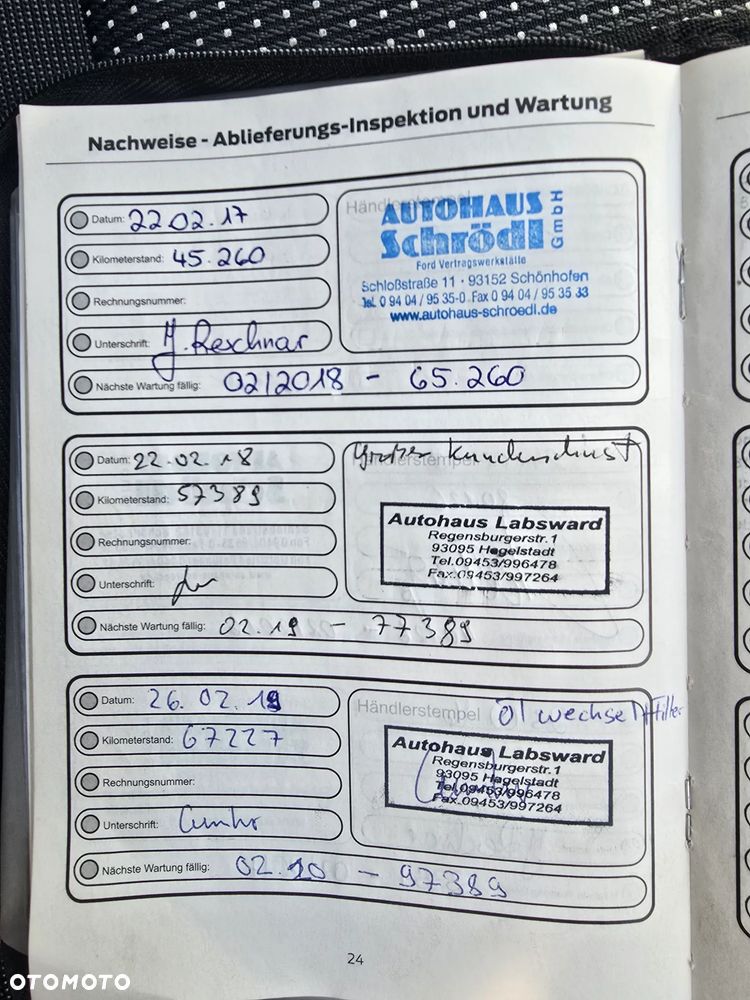 Nachweise - Ablieferungs-Inspektion und Wartung
Datum: 22.02.17
Kilometerstand: 45.260
Rechnungsnummer:
Unterschrift: J. Reschnar
Nächste Wartung fällig: 02/2018 - 65.260
Händlerstempel
AUTOHAUS
Schrödl GmbH
Ford Vertragswerkstätte
Schloßstraße 11 · 93152 Schönhofen
Tel. 0 94 04 / 95 35-0 . Fax 0 94 04 / 95 35 33
www.autohaus-schroedl.de
Datum: 22.02.18
Kilometerstand: 57389
Rechnungsnummer:
Unterschrift:
Nächste Wartung fällig: 02.19 - 77389
Großer Kundendinst
Händlerstempel
Autohaus Labsward
Regensburgerstr.1
93095 Hagelstadt
Tel.09453/996478
Fax.09453/997264
Datum: 26.02.19
Kilometerstand: 67227
Rechnungsnummer:
Unterschrift:
Nächste Wartung fällig: 02.20 - 97389
Händlerstempel Öl wechsel+Filter
Autohaus Labsward
Regensburgerstr.1
93095 Hagelstadt
Tel.09453/996478
Fax.09453/997264
24
OTOMOTO